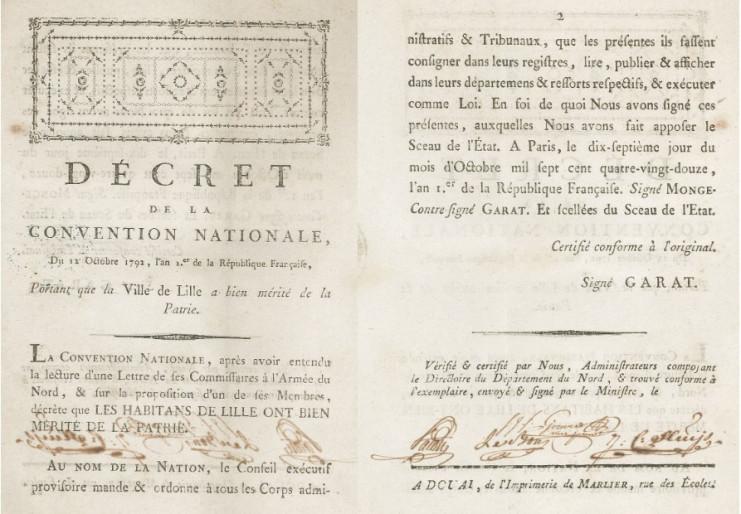 DÉCRET
DE LA
CONVENTION NATIONALE,
Du 12 Octobre 1792, l'an 1.er de la République Française,
Portant que la Ville de Lille a bien mérité de la
Patrie.
LA CONVENTION NATIONALE, après avoir entendu
la lecture d'une Lettre de ses Commissaires à l'Armée du
Nord, & sur la proposition d'un de ses Membres,
décrète que LES HABITANS DE LILLE ONT BIEN
MÉRITÉ DE LA PATRIE.
AU NOM DE LA NATION, le Conseil exécutif
provisoire mande & ordonne à tous les Corps admi-
2
nistratifs & Tribunaux, que les présentes ils fassent
consigner dans leurs registres, lire, publier & afficher
dans leurs départemens & ressorts respectifs, & exécuter
comme Loi. En foi de quoi Nous avons signé ces
présentes, auxquelles Nous avons fait apposer le
Sceau de l'État. A Paris, le dix-septième jour du
mois d'Octobre mil sept cent quatre-vingt-douze,
l'an 1.er de la République Française. Signé MONGE.
Contre-signé GARAT. Et scellées du Sceau de l'Etat.
Certifié conforme à l'original.
Signé GARAT.
Vérifié & certifié par Nous, Administrateurs composant
le Directoire du Département du Nord, & trouvé conforme à
l'exemplaire, envoyé & signé par le Ministre, le
A DOUAI, de l'Imprimerie de MARLIER, rue des Écoles.